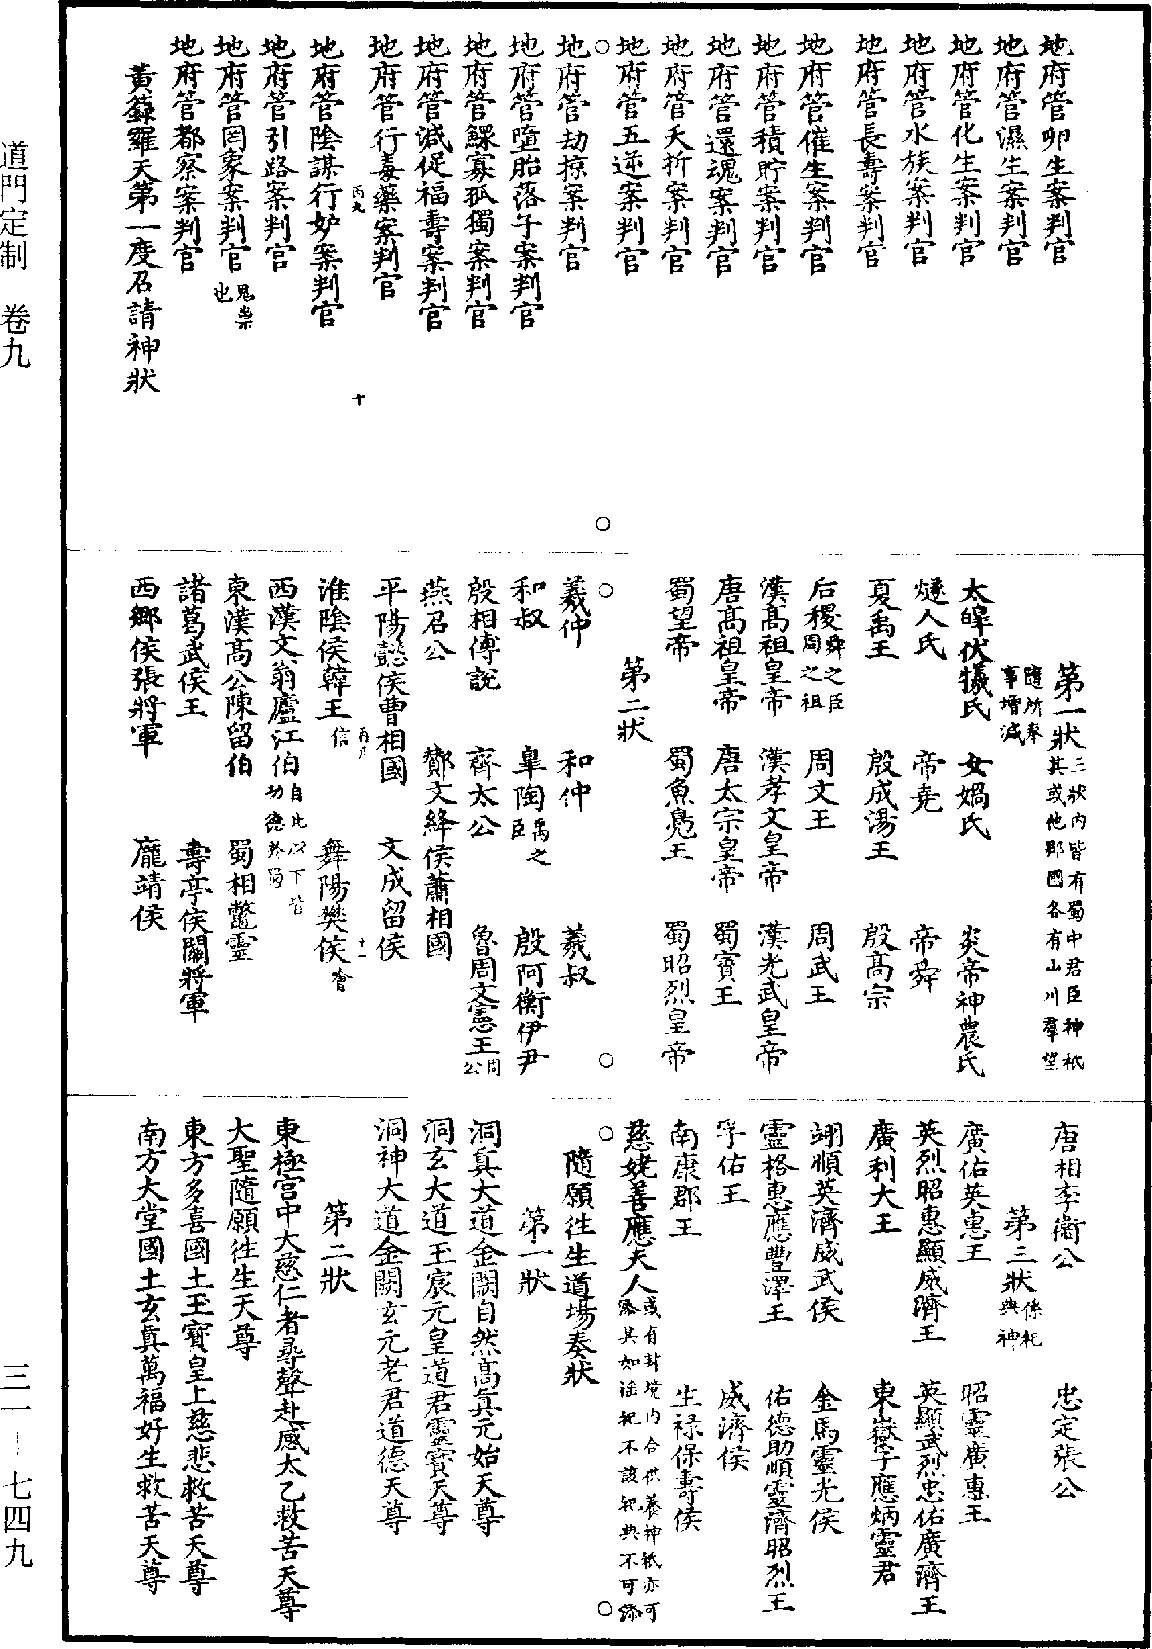 地府管卵生案判官
地府管濕生案判官
地府管化生案判官
地府管水族案判官
地府管長壽案判官
地府管催生案判官
地府管積貯案判官
地府管還魂案判官
地府管夭折案判官
地府管五逆案判官
地府管劫掠案判官
地府管墮胎落子案判官
地府管鰥寡孤獨案判官
地府管減促福壽案判官
地府管行毒藥案判官
丙九 十
地府管陰謀行妒案判官
地府管引路案判官
地府管罔象案判官 鬼祟也
地府管都察案判官
黃籙羅天第一度召請神狀
第一狀 三狀內皆有蜀中君臣神祇其或他郡國各有山川羣望
隨所奏事增減
太皞伏犧氏 女媧氏 炎帝神農氏
燧人氏 帝堯 帝舜
夏禹王 殷成湯王 殷高宗
后稷 舜之臣周之祖 周文王 周武王
漢高祖皇帝 漢孝文皇帝 漢光武皇帝
唐高祖皇帝 唐太宗皇帝 蜀寶王
蜀望帝 蜀魚鳧王 蜀昭烈皇帝
第二狀
羲仲 和仲 羲叔
和叔 臯陶 禹之臣 殷阿衡伊尹
殷相傅說 齊太公 魯周文憲王 周公
燕召公 鄭文絳侯蕭相國
平陽懿侯曹相國 文成留侯
十一
淮陰侯韓王 信 舞陽樊侯 會
西漢文翁廬江伯 自此以下皆功德於蜀
東漢高公陳留伯 蜀相鼈靈
諸葛武侯王 壽亭侯關將軍
西鄉侯張將軍 龐靖侯
唐相李衛公 忠定張公
第三狀 係祀典神
廣佑英惠王 昭靈廣惠王
英烈昭惠顯威濟王 英顯武烈忠佑廣濟王
廣利大王 東嶽子應炳靈君
翊順英濟威武侯 金馬靈光侯
靈格惠應豐澤王 佑德助順靈濟昭烈王
孚佑王 威濟侯
南康郡王 生祿保壽侯
慈姥善應夫人 或有封境內合供養神祇亦可添其如淫祀不該祀典不可錄
隨願往生道場奏狀
第一狀
洞真大道金闕自然高真元始天尊
洞玄大道玉宸元皇道君靈寶天尊
洞神大道金闕玄元老君道德天尊
第二狀
東極宮中大慈仁者尋聲赴感太乙救苦天尊
大聖隨願往生天尊
東方多喜國土玉寶皇上慈悲救苦天尊
南方大堂國土玄真萬福好生救苦天尊
道門定制 卷九
三一—七四九